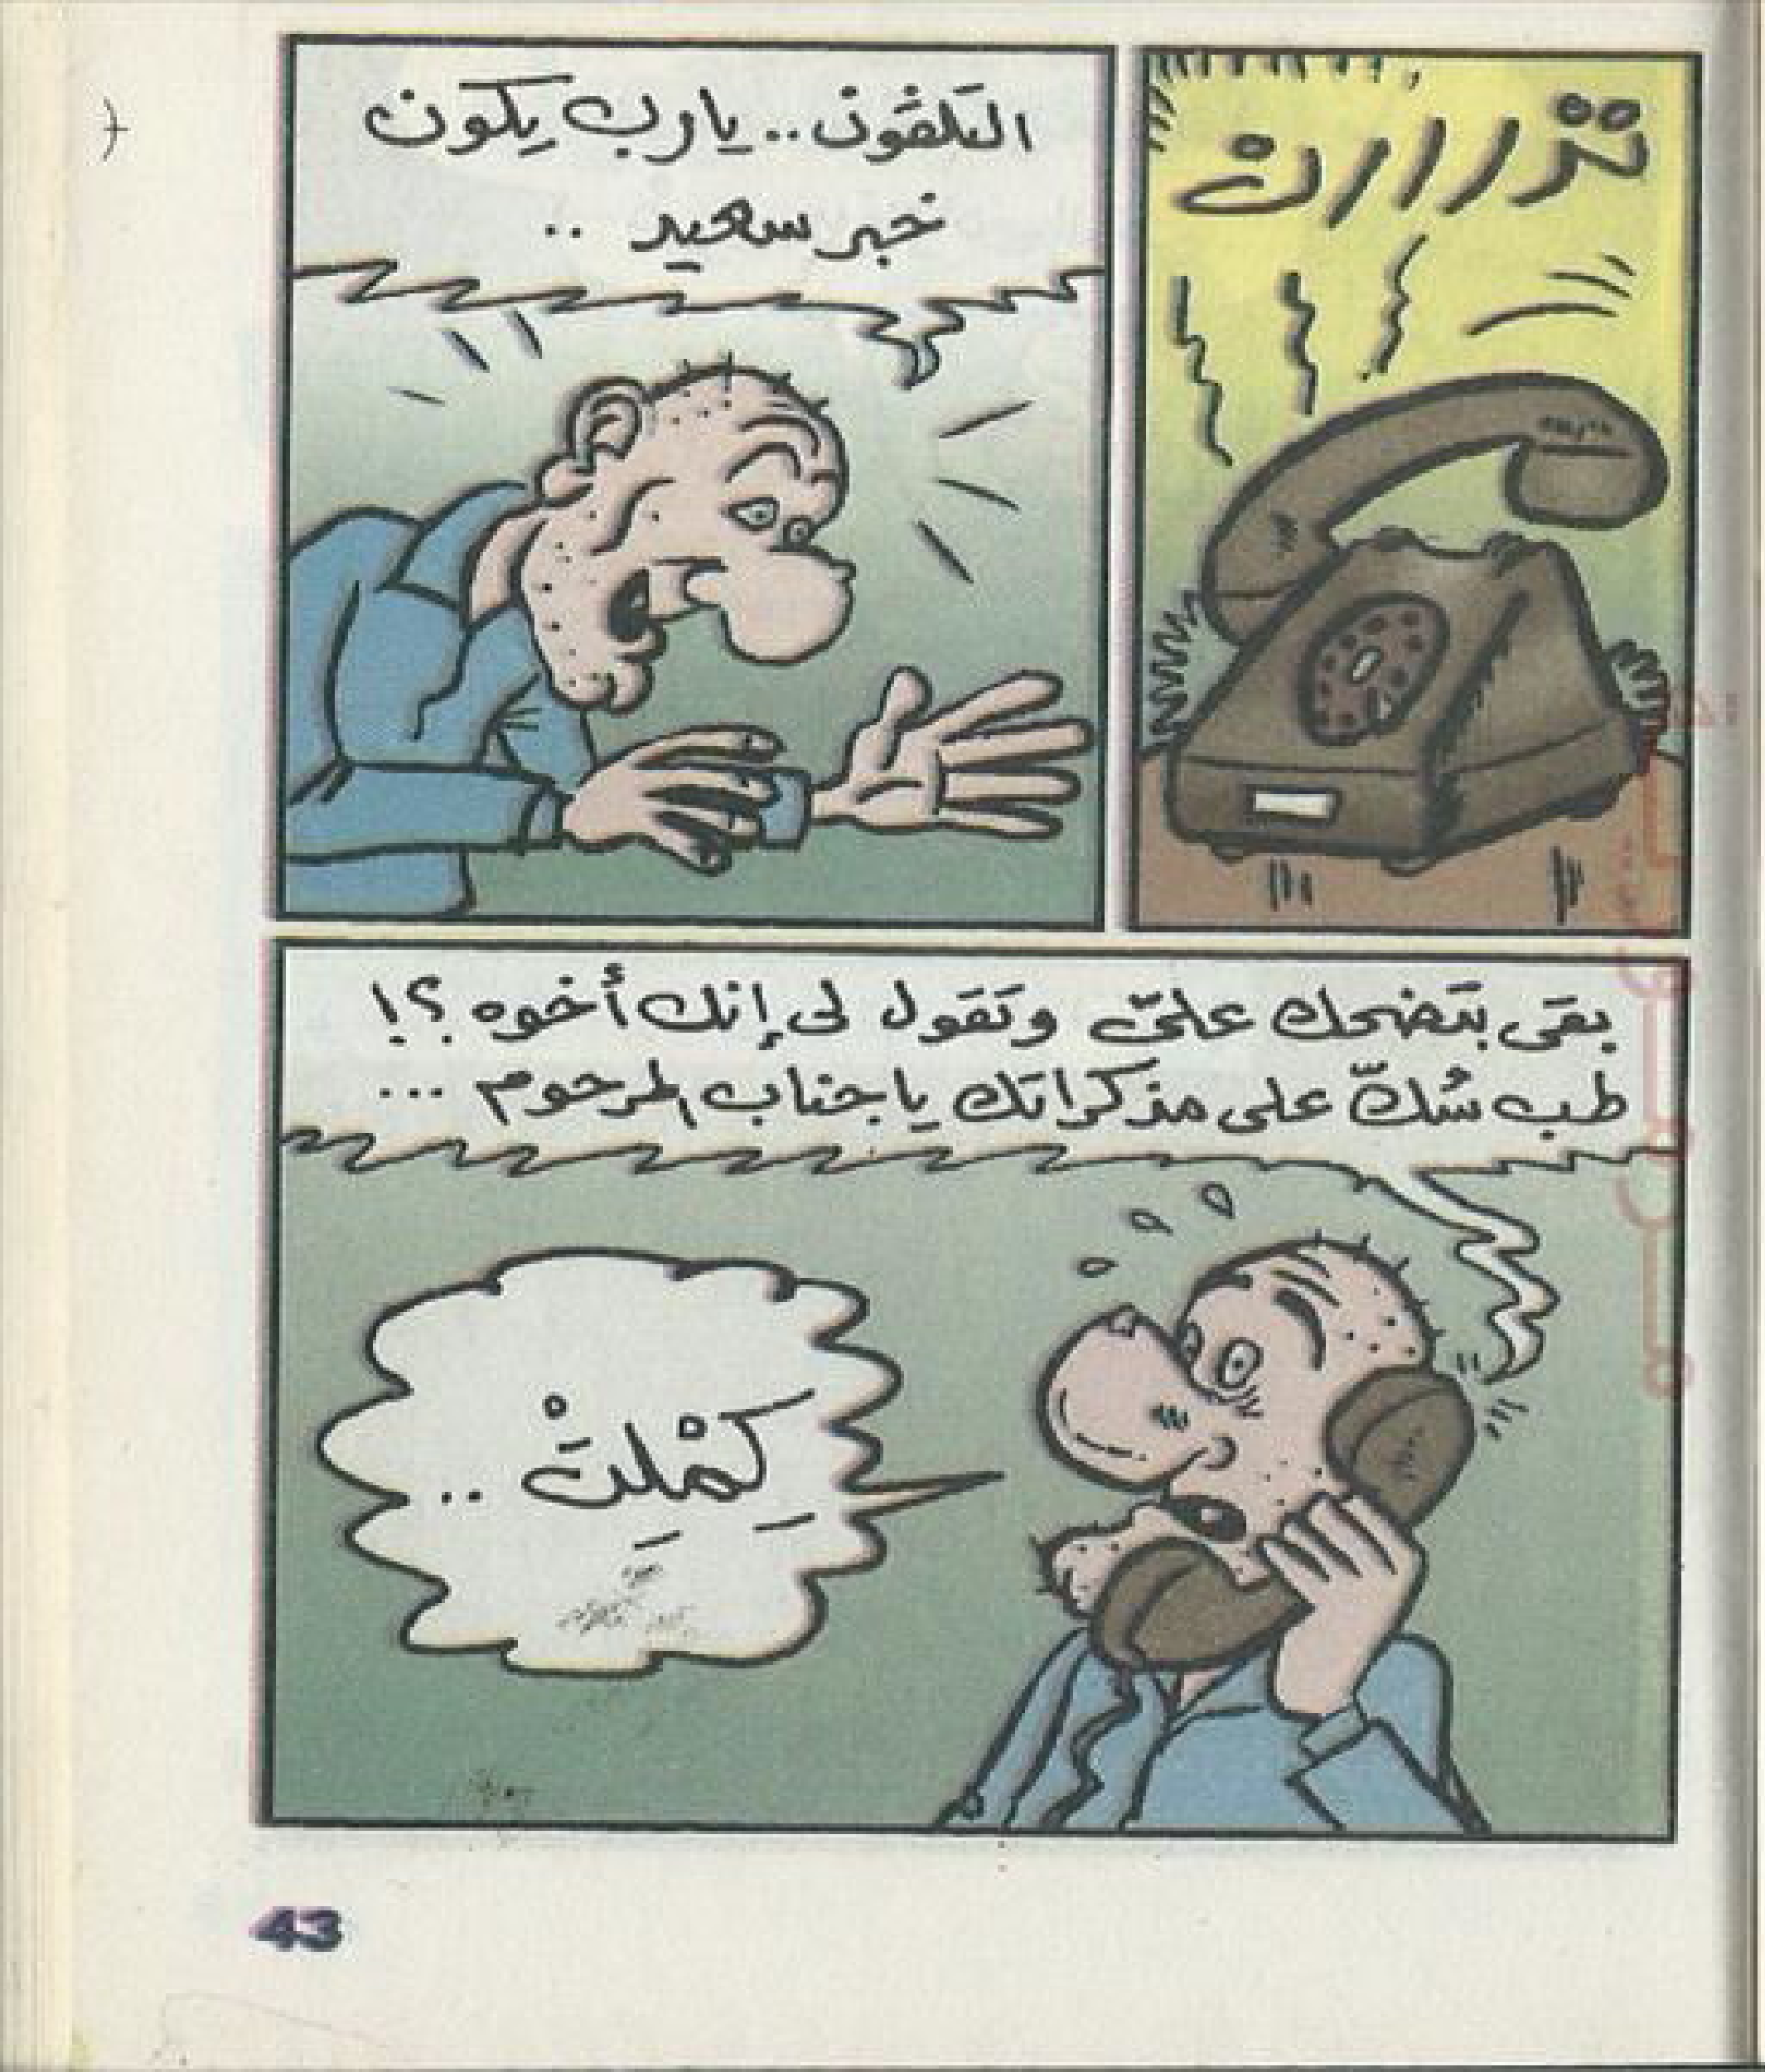 تررااارن
التلفون.. يارب يكون
خبر سعيد ..
بقى بتضحك علىّ وتقول لى إنك أخوه ؟!
طب سُكّ على مذكراتك يا جناب المرحوم ...
كِمْلِتْ ..
43